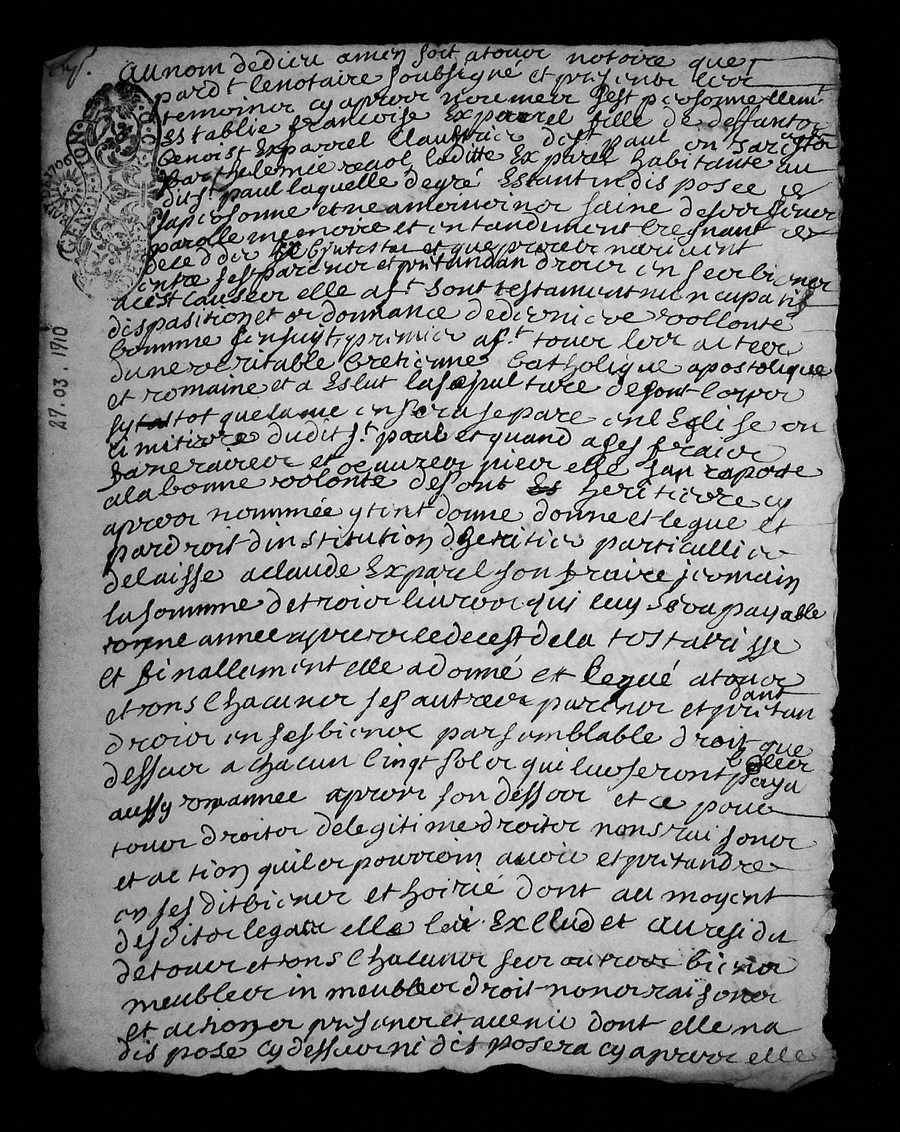 au nom de dieu amen soit atouor notoire que
pardt le notaire soubsigné et presenor leor
temoinor cy apreor nommeor sest personnellemt
Establie francoise Exparrel fille de deffantor
benoist Exparrel Claustrier dest paul en Jarest
et Barthelemie reaol laditte Exparel habitante au
dit st paul laquelle de gré Estant indisposee de
sa personne et neantmoinor saine de sor sineor
parolle memoire et entandement creignant de
deceddeor et que procor meuvient
entre ses parenor et pretandan droior en seor bienor
a cest causeor elle a ft sont testament nuncupatif
dispasition et ordonnance de derniere vollonte
comme sensuit primier a ft touor leor acteor
dune veritable cretienne catholique apostolique
et romaine et a Eslut la sepulture de sont corpor
sytostot que lame en sera separe en lEglise ou
cimitiere dudit st paul et quand a ses fraior
funeraireor et oeuureor pieor elle san rapote
a la bonne volonte de sont heritiere cy
apreor nommée ytint donne donne et legue et
par droit dinstitution dheritier particullier
delaisse a claude Exparel son fraire jermain
la somme de troior liureor qui luy sera payable
une annee apreor le decest de la testatrisse
et finallement elle a donné et legué a touor
et tons chacunor ses autreor parenor et pretan dant
droior en ses bienor par semblable droit que
dessuor a chacun cingt solor qui luor seront paya bleor
aussy ron annee apreor son dessor et ce pour
touor droitor de legitime droitor nonsraisonor
et action quilor pourroin auoir et pretandre
en ses dit bienor et hoirié dont au moyent
desditor legaor elle lei Excllud et au residu
de touor et tons chacunor seor autreor bienor
meubleor inmeubleor droit nonor raisonor
et actionor presenor et auenir dont elle na
dis posé cy dessuor ni disposera cy apreor elle
27.03.1710